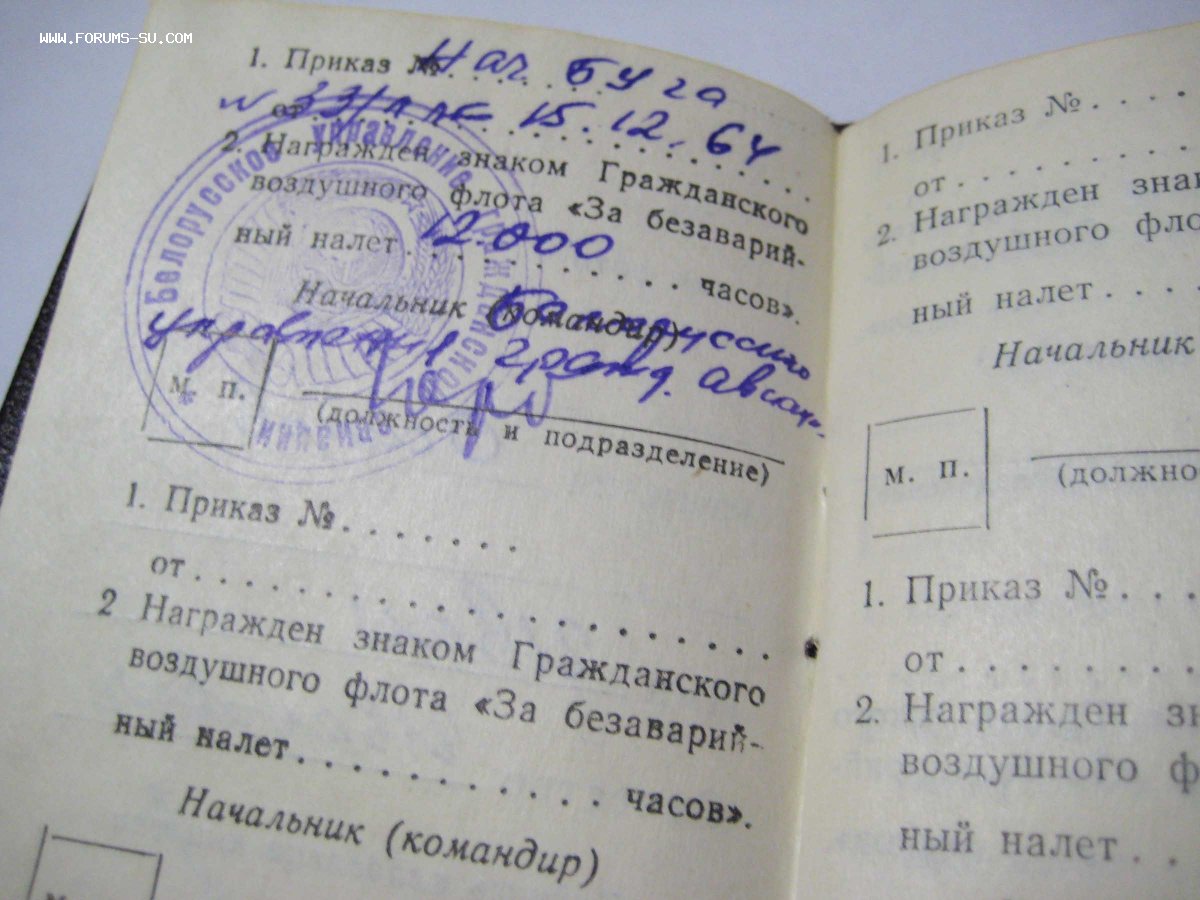 WWW.FORUMS-SU.COM
1. Приказ №. Нач. БУГА
от 15.12.64
2. Награжден знаком Гражданского
воздушного флота «За безаварий-
ный налет 12.000 часов».
Начальник (командир) Белорусского
управления гражд. авиац.
м. п.
(должность и подразделение)
Белорусское управление гражданской авиации
1. Приказ №. . . . . . .
от. . . . . . . . . . . . . . . . . .
2 Награжден знаком Гражданского
воздушного флота «За безаварий-
ный налет. . . . . . . . . . . часов».
Начальник (командир)
1. Приказ №. . . .
от. . . . . . . . .
2. Награжден зна
воздушного фло
ный налет. . . .
Начальник
м. п.
(должно
1. Приказ №. . .
от. . . . . . . .
2. Награжден зн
воздушного ф
ный налет. . .